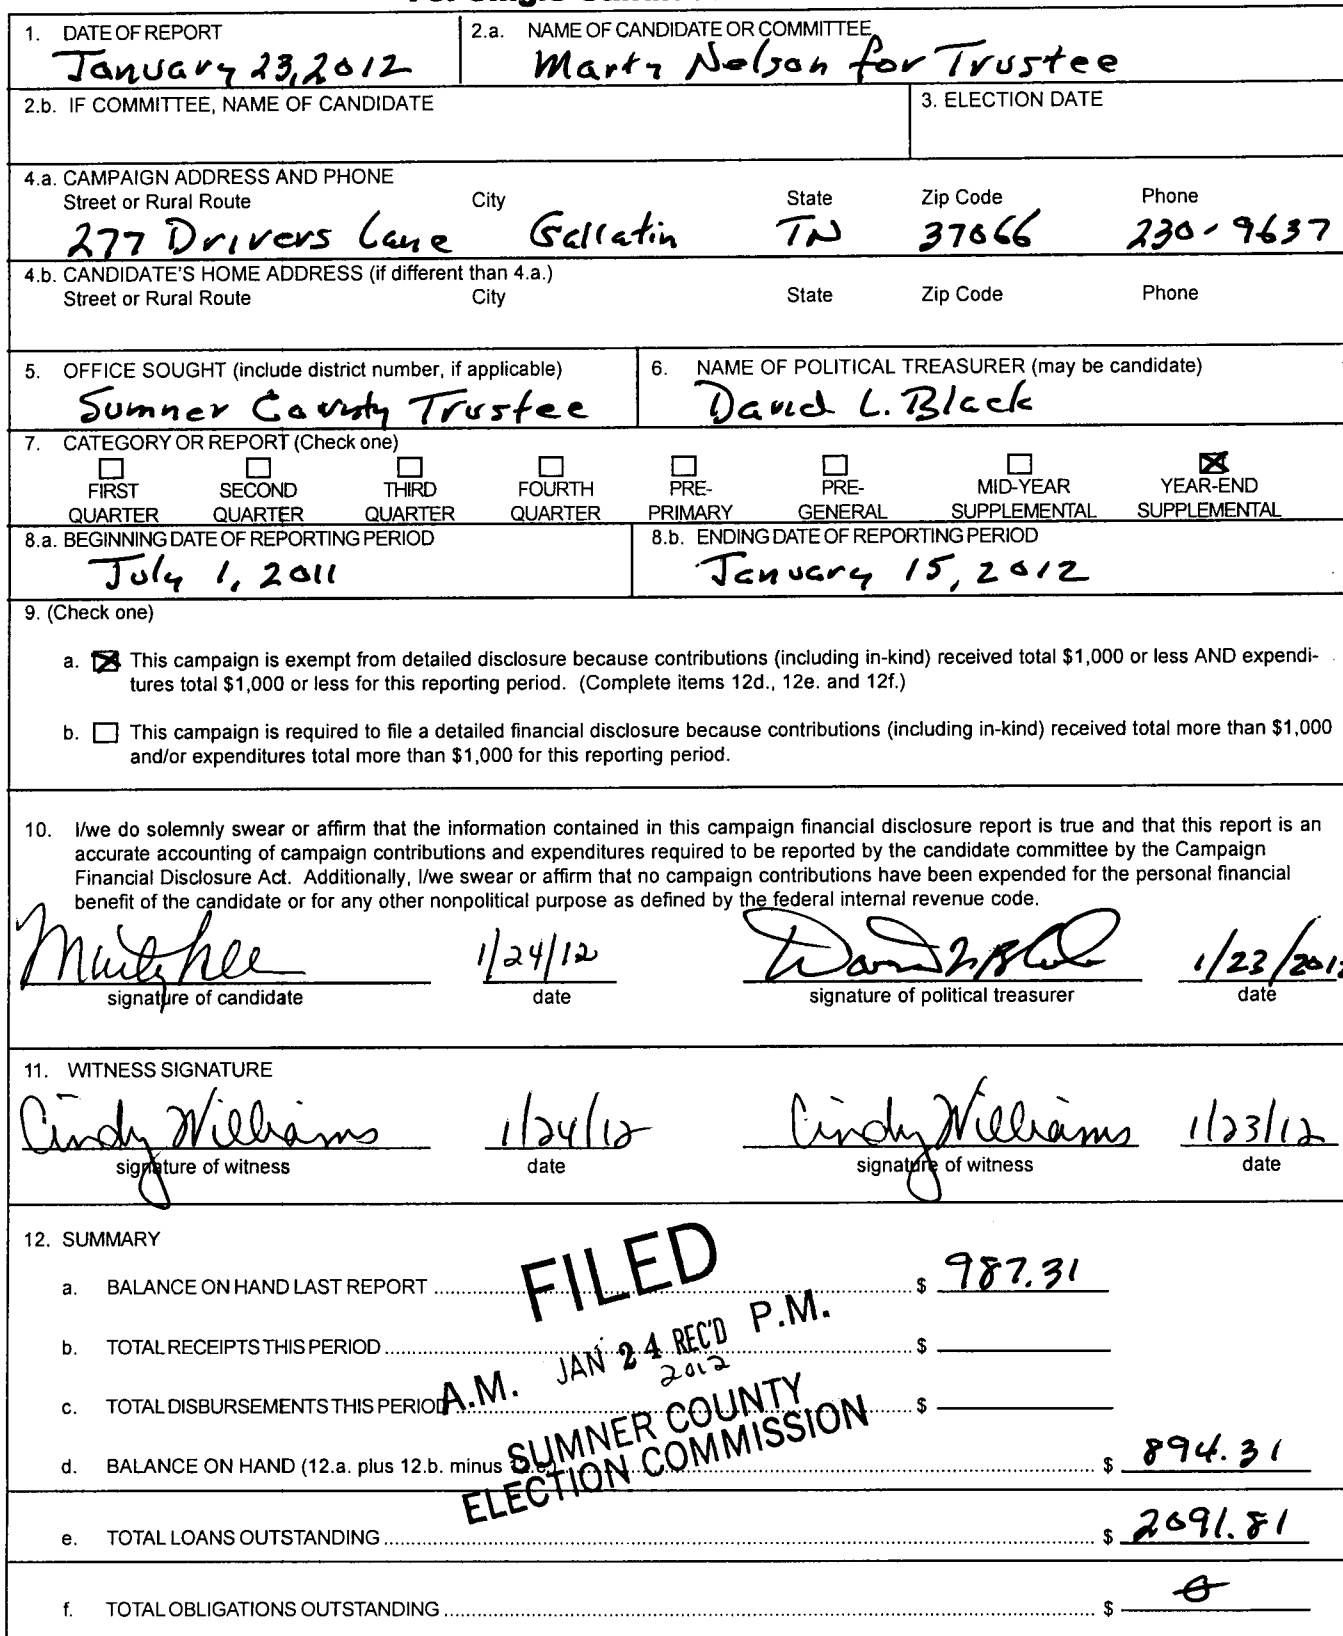 1. DATE OF REPORT
January 23, 2012
2.a. NAME OF CANDIDATE OR COMMITTEE
Marty Nelson for Trustee
2.b. IF COMMITTEE, NAME OF CANDIDATE
3. ELECTION DATE
4.a. CAMPAIGN ADDRESS AND PHONE
Street or Rural Route City State Zip Code Phone
277 Drivers Lane Gallatin TN 37066 230-9637
4.b. CANDIDATE'S HOME ADDRESS (if different than 4.a.)
Street or Rural Route City State Zip Code Phone
5. OFFICE SOUGHT (include district number, if applicable)
Sumner County Trustee
6. NAME OF POLITICAL TREASURER (may be candidate)
David L. Black
7. CATEGORY OR REPORT (Check one)
FIRST SECOND THIRD FOURTH PRE- PRE- MID-YEAR YEAR-END
QUARTER QUARTER QUARTER QUARTER PRIMARY GENERAL SUPPLEMENTAL SUPPLEMENTAL
8.a. BEGINNING DATE OF REPORTING PERIOD
July 1, 2011
8.b. ENDING DATE OF REPORTING PERIOD
January 15, 2012
9. (Check one)
a. This campaign is exempt from detailed disclosure because contributions (including in-kind) received total $1,000 or less AND expendi-
tures total $1,000 or less for this reporting period. (Complete items 12d., 12e. and 12f.)
b. This campaign is required to file a detailed financial disclosure because contributions (including in-kind) received total more than $1,000
and/or expenditures total more than $1,000 for this reporting period.
10. I/we do solemnly swear or affirm that the information contained in this campaign financial disclosure report is true and that this report is an
accurate accounting of campaign contributions and expenditures required to be reported by the candidate committee by the Campaign
Financial Disclosure Act. Additionally, I/we swear or affirm that no campaign contributions have been expended for the personal financial
benefit of the candidate or for any other nonpolitical purpose as defined by the federal internal revenue code.
1/24/12 1/23/2012
signature of candidate date signature of political treasurer date
11. WITNESS SIGNATURE
Cindy Williams 1/24/12 Cindy Williams 1/23/12
signature of witness date signature of witness date
12. SUMMARY
a. BALANCE ON HAND LAST REPORT $ 987.31
b. TOTAL RECEIPTS THIS PERIOD $
c. TOTAL DISBURSEMENTS THIS PERIOD $
d. BALANCE ON HAND (12.a. plus 12.b. minus $ 894.31
e. TOTAL LOANS OUTSTANDING $ 2091.81
f. TOTAL OBLIGATIONS OUTSTANDING $ 0
FILED
A.M. JAN 24 REC'D P.M.
2012
SUMNER COUNTY
ELECTION COMMISSION